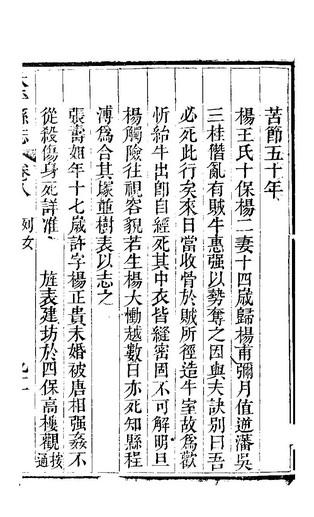 苦節五十年
楊王氏十保楊二妻十四歲歸楊甫彌月值逆藩吳
三桂僭亂有賊牛惠强以勢奪之因與夫訣別曰吾
必死此行矣來日當收骨於賊所徑造牛室故爲歡
忻紿牛出卽自經死其中衣皆縫密固不可解明旦
楊觸險往視容貌若生楊大慟越數日亦死知縣程
溥爲合其塚並樹表以志之
張壽姐年十七歲許字楊正貴未婚被唐相強姦不
從殺傷身死詳准 旌表建坊於四保高樓觀按通
縣志 卷八 列女